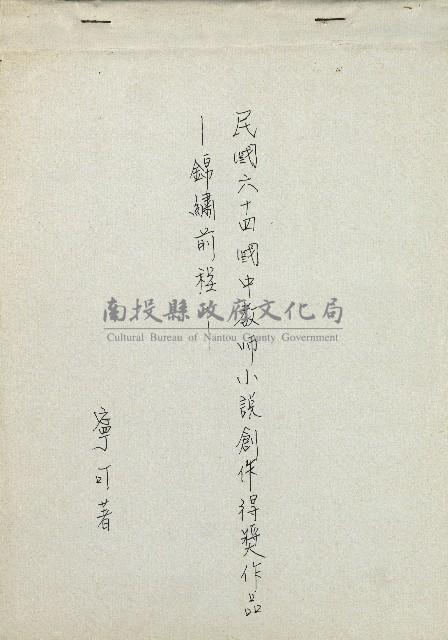 民國六十四國中教师小説創作得獎作品
—錦繡前程—
寧可著
南投縣政府文化局
Cultural Bureau of Nantou County Government